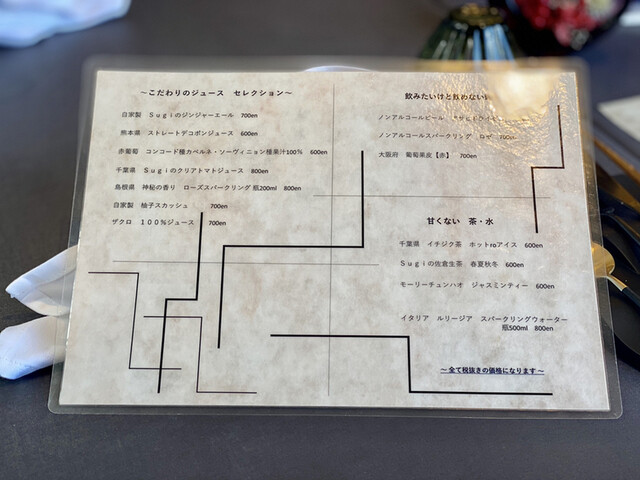 ～こだわりのジュース　セレクション～
自家製　Ｓｕｇｉのジンジャーエール　700en
熊本県　ストレートデコポンジュース　600en
赤葡萄　コンコード種カベルネ・ソーヴィニョン種果汁100％　600en
千葉県　Ｓｕｇｉのクリアトマトジュース　800en
島根県　神秘の香り　ローズスパークリング 瓶200ml　800en
自家製　柚子スカッシュ　700en
ザクロ　１００％ジュース　700en
飲みたいけど飲めない
ノンアルコールビール
ノンアルコールスパークリング　ロゼ　700en
大阪府　葡萄果皮【赤】　700en
甘くない　茶・水
千葉県　イチジク茶　ホットroアイス　600en
Ｓｕｇｉの佐倉生茶　春夏秋冬　600en
モーリーチュンハオ　ジャスミンティー　600en
イタリア　ルリージア　スパークリングウォーター
瓶500ml　800en
～全て税抜きの価格になります～